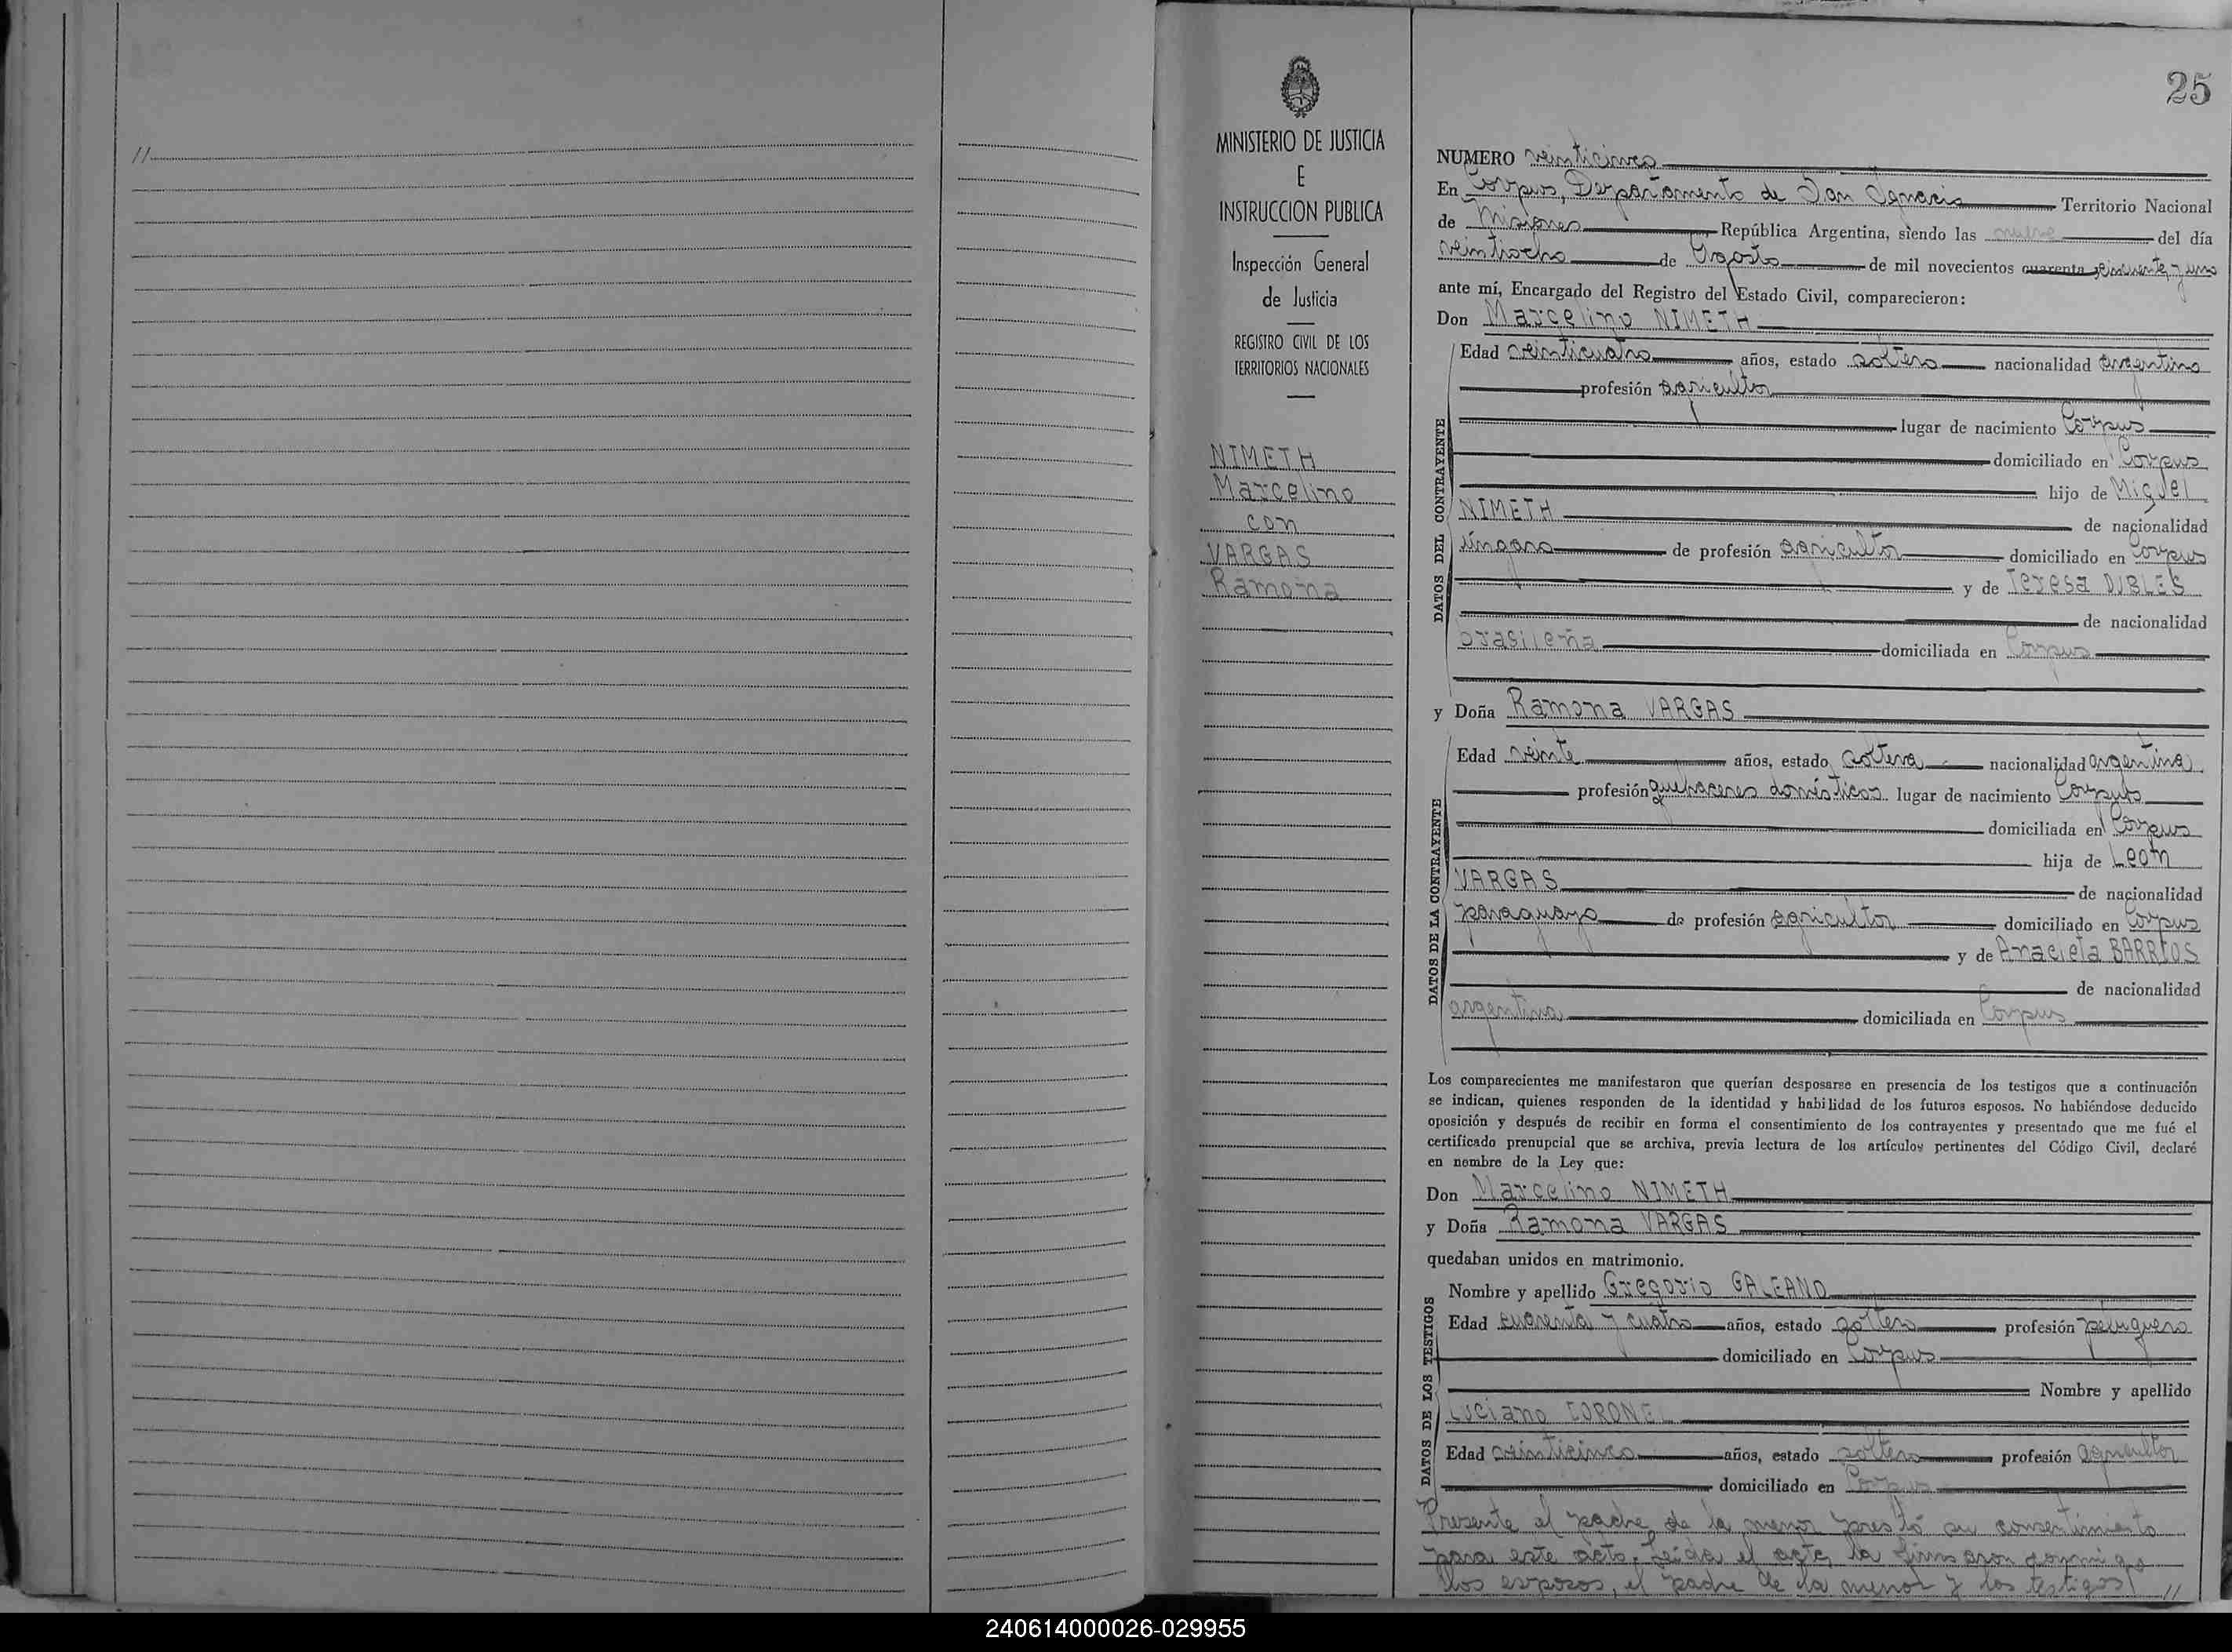 //
25
MINISTERIO DE JUSTICIA
E
INSTRUCCION PUBLICA
Inspección General
de Justicia
REGISTRO CIVIL DE LOS
TERRITORIOS NACIONALES
NIMETH
Marcelino
con
VARGAS
Ramona
NUMERO veinticinco
En Corpus, Departamento de San Ignacio Territorio Nacional
de Misiones República Argentina, siendo las nueve del día
veintiocho de Agosto de mil novecientos cuarenta cincuenta y uno
ante mí, Encargado del Registro del Estado Civil, comparecieron:
Don Marcelino NIMETH
DATOS DEL CONTRAYENTE
Edad veinticuatro años, estado soltero nacionalidad argentino
profesión agricultor
lugar de nacimiento Corpus
domiciliado en Corpus
hijo de Miguel
NIMETH de nacionalidad
úngaro de profesión agricultor domiciliado en Corpus
y de Teresa DIBLES
de nacionalidad
brasileña domiciliada en Corpus
y Doña Ramona VARGAS
DATOS DE LA CONTRAYENTE
Edad veinte años, estado soltera nacionalidad argentina
profesión quehaceres domésticos lugar de nacimiento Corpus
domiciliada en Corpus
hija de León
VARGAS de nacionalidad
paraguayo de profesión agricultor domiciliado en Corpus
y de Anacleta BARRIOS
de nacionalidad
argentina domiciliada en Corpus
Los comparecientes me manifestaron que querían desposarse en presencia de los testigos que a continuación
se indican, quienes responden de la identidad y habilidad de los futuros esposos. No habiéndose deducido
oposición y después de recibir en forma el consentimiento de los contrayentes y presentado que me fué el
certificado prenupcial que se archiva, previa lectura de los artículos pertinentes del Código Civil, declaré
en nombre de la Ley que:
Don Marcelino NIMETH
y Doña Ramona VARGAS
quedaban unidos en matrimonio.
DATOS DE LOS TESTIGOS
Nombre y apellido Gregorio GALEANO
Edad cuarenta y cuatro años, estado soltero profesión peluquero
domiciliado en Corpus
Nombre y apellido
Luciano CORONEL
Edad veinticinco años, estado soltero profesión agricultor
domiciliado en Corpus
Presente el padre de la menor prestó su consentimiento
para este acto. Leída el acta, la firmaron conmigo
los esposos, el padre de la menor y los testigos //
240614000026-029955